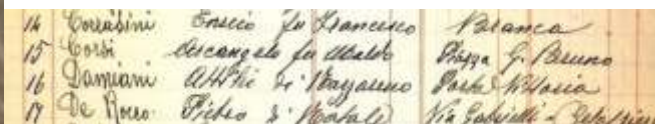 14 Corradini Enrico fu Francesco Branca
15 Corsi Arcangelo fu Ubaldo Piazza G. Bruno
16 Damiani Attilio di Nazzareno Porta Vittoria
17 De Rocco Pietro di Natale Via Gabrielli